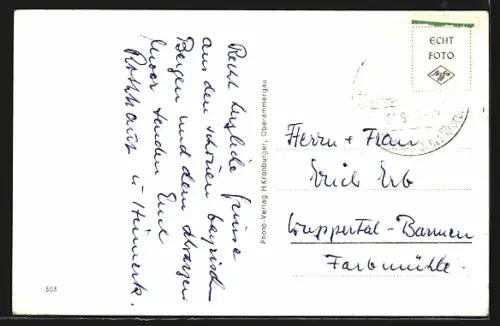 Recht herzliche Grüsse
aus den schönen bayrischen
Bergen und dem
Moor senden Euch
u. Heinerk.
Photo-Verlag H. Kronburger, Oberammergau
ECHT
FOTO
Agfa
Herrn + Frau
Erich Erb
Wuppertal-Barmen
Farbmühle.
503